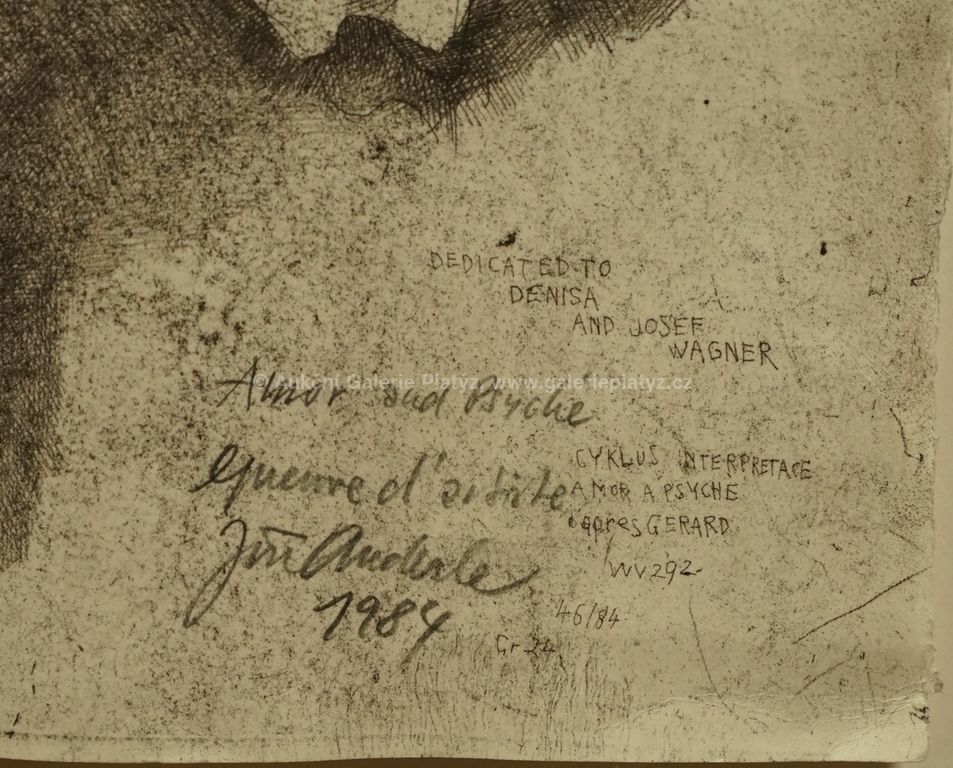 DEDICATED TO
DENISA
AND JOSEF
WAGNER
© Aukční Galerie Platýz, www.galerieplatyz.cz
Amor and Psyche
épreuve d'artiste
Jiří Anderle
1984
CYKLUS INTERPRETACE
AMOR A PSYCHE
d'apres GERARD
WV 292
46/84
Gr 24